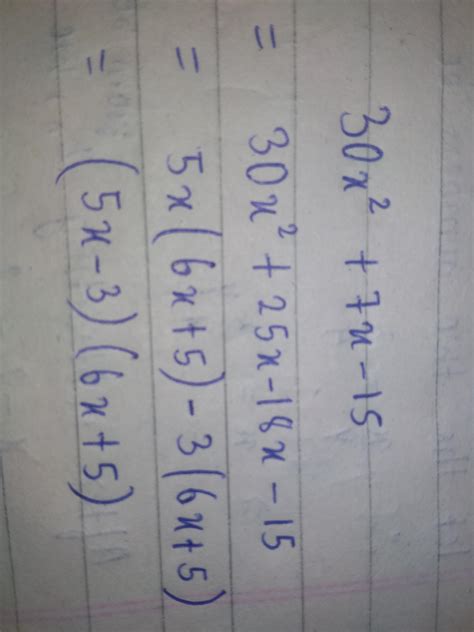 30x² + 7x - 15
= 30x² + 25x - 18x - 15
= 5x(6x+5) - 3(6x+5)
= (5x-3)(6x+5)